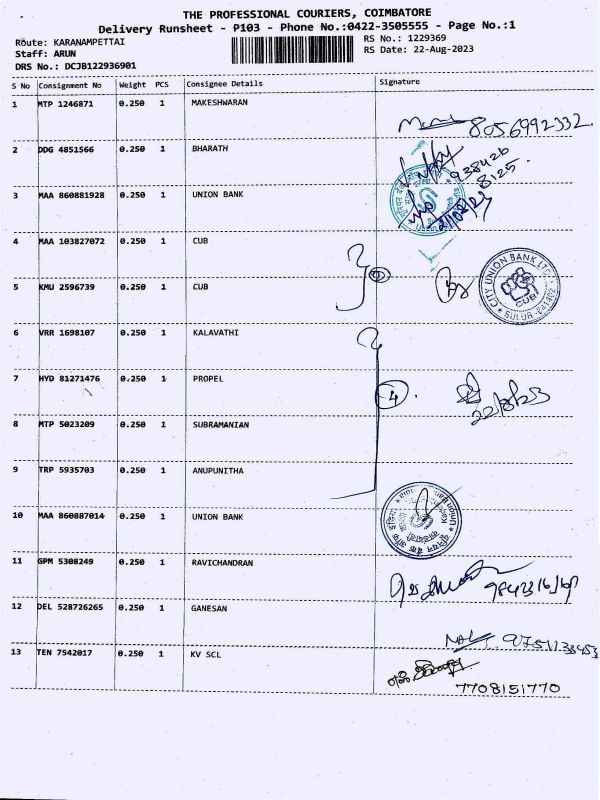 THE PROFESSIONAL COURIERS, COIMBATORE
Delivery Runsheet - P103 - Phone No.:0422-3505555 - Page No.:1
Route: KARANAMPETTAI
RS No.: 1229369
Staff: ARUN
RS Date: 22-Aug-2023
DRS No.: DCJB122936901
S No Consignment No Weight PCS Consignee Details Signature
1 MTP 1246871 0.250 1 MAKESHWARAN
8056992332
2 DDG 4851566 0.250 1 BHARATH
93842b
8125
3 MAA 860881928 0.250 1 UNION BANK
4 MAA 103827072 0.250 1 CUB
CITY UNION BANK LTD.
CUB
SULUR-641402
5 KMU 2596739 0.250 1 CUB
6 VRR 1698107 0.250 1 KALAVATHI
7 HYD 81271476 0.250 1 PROPEL
4
22/8/23
8 MTP 5023209 0.250 1 SUBRAMANIAN
9 TRP 5935703 0.250 1 ANUPUNITHA
10 MAA 860887014 0.250 1 UNION BANK
Union Bank
11 GPM 5308249 0.250 1 RAVICHANDRAN
12 DEL 528726265 0.250 1 GANESAN
9751138453
13 TEN 7542017 0.250 1 KV SCL
7708151770